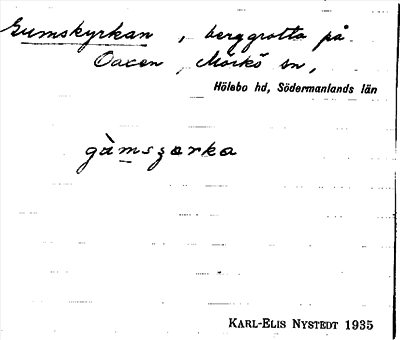 Gumskyrkan, berggrotta på
Oaxen, Mörkö sn,
Hölebo hd, Södermanlands län
gùmsʒɑrka
KARL-ELIS NYSTEDT 1935